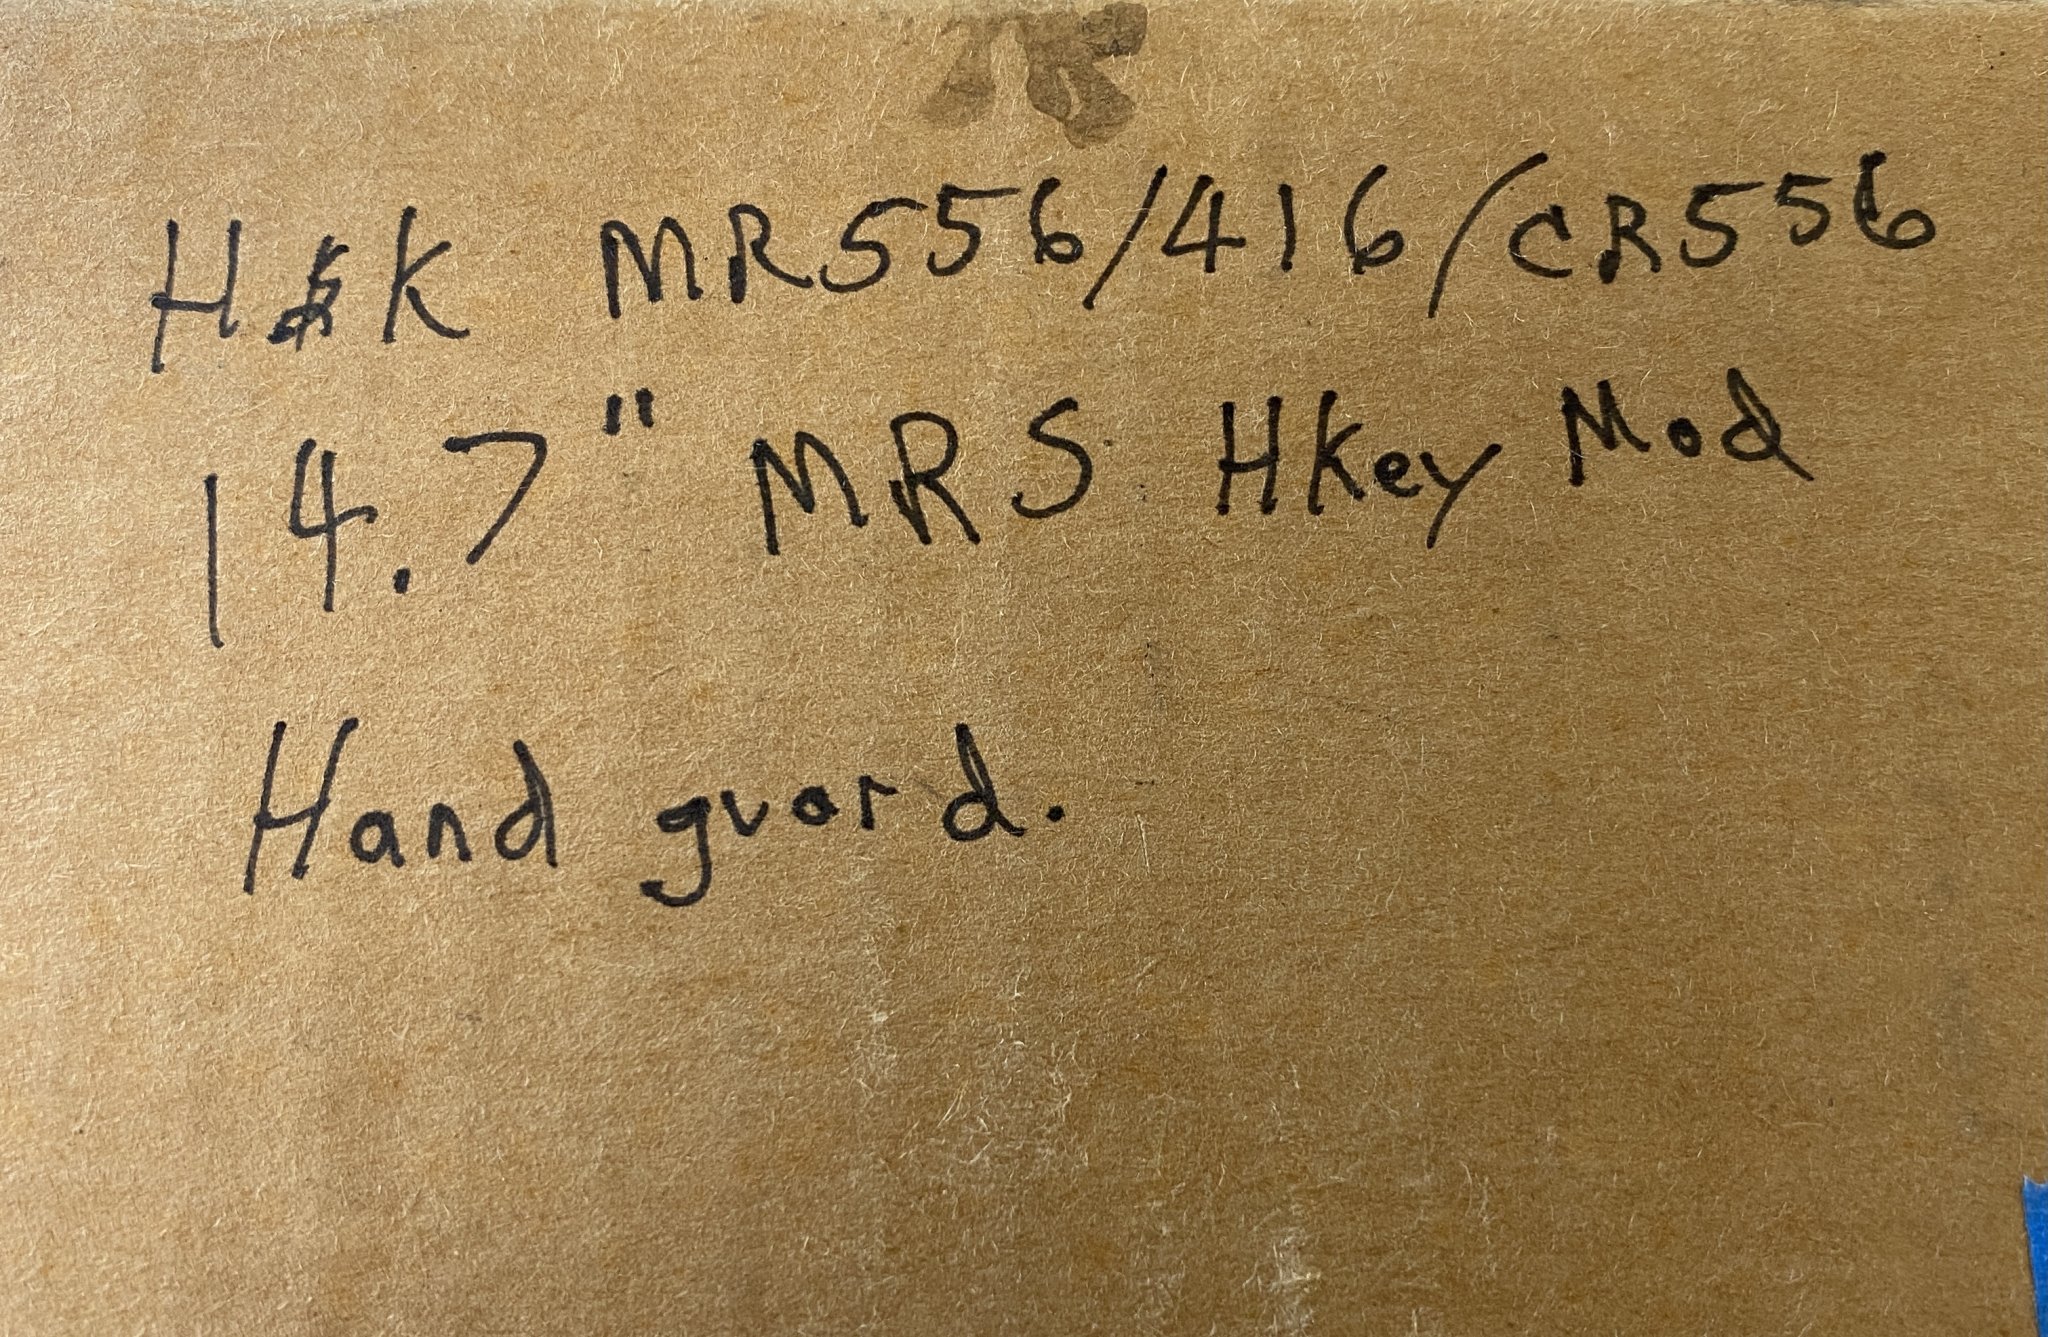 H&K MR556/416/CR556
14.7" MRS HKey Mod
Hand guard.